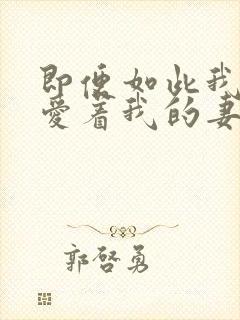 即便如此我
爱着我的妻
郭啓勇